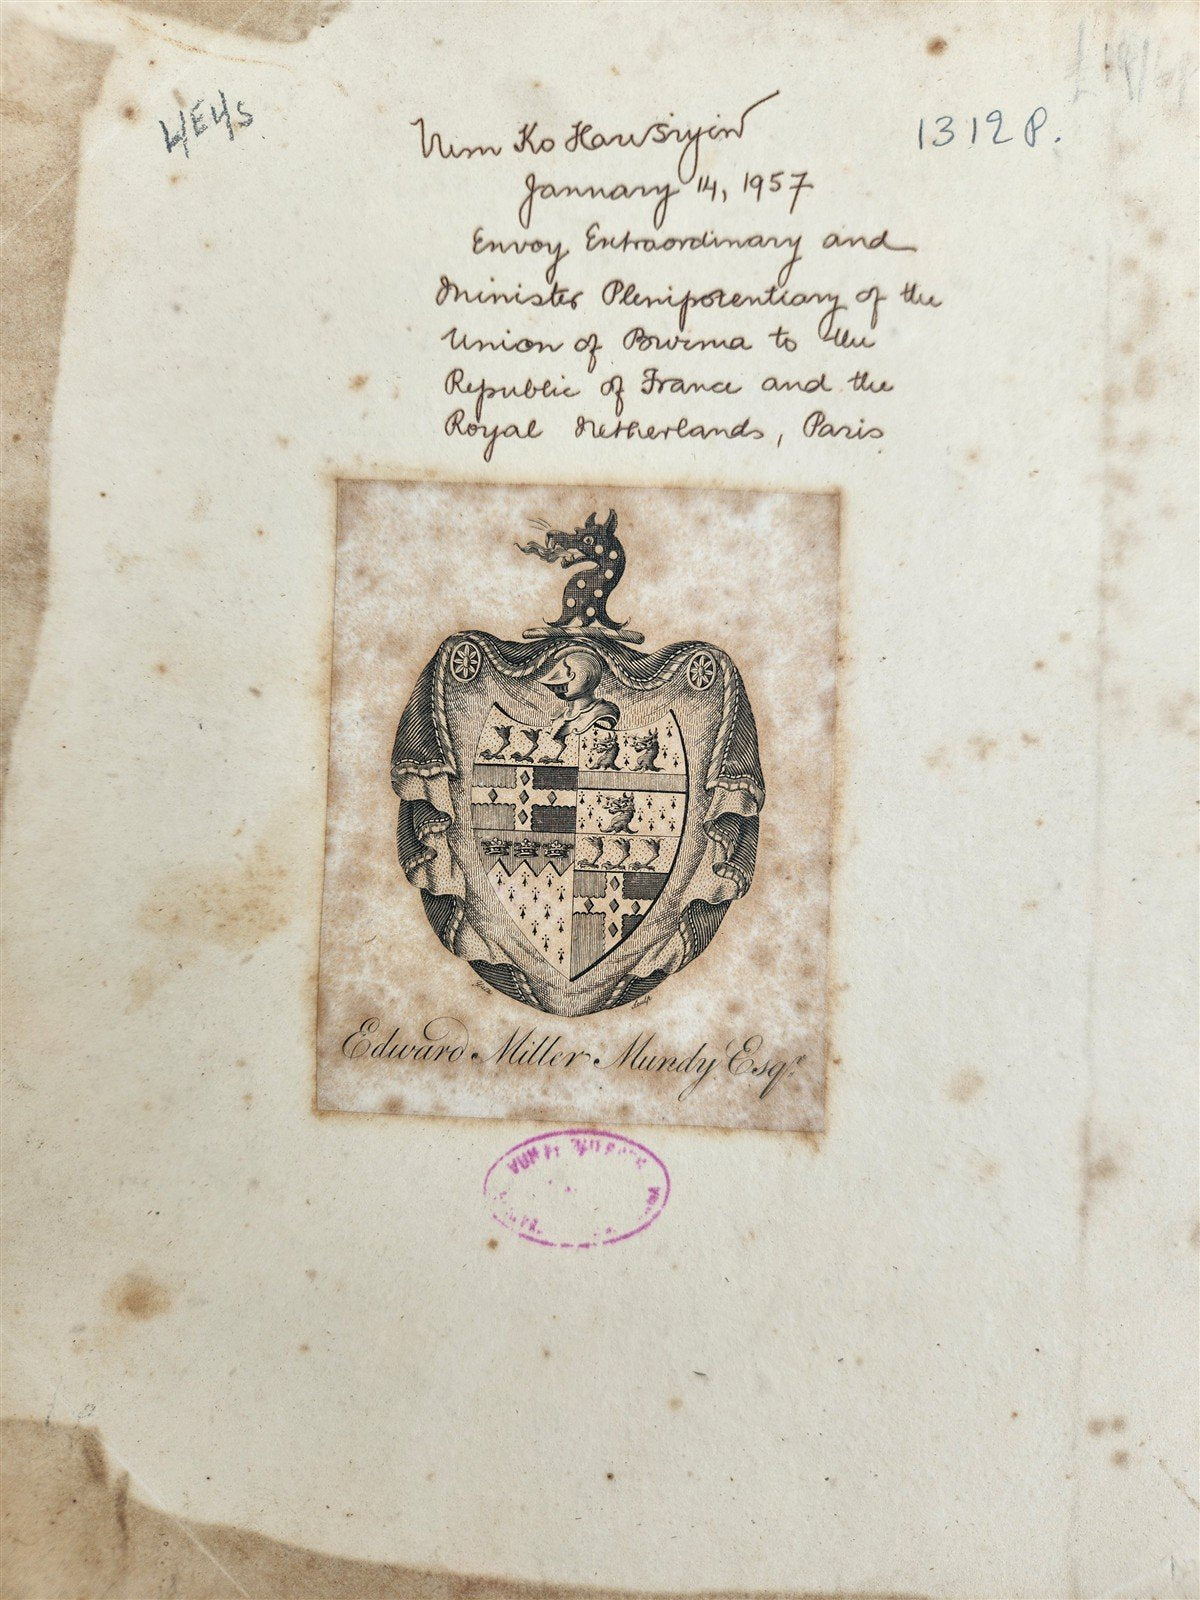 January 14, 1957
Envoy Extraordinary and
Minister Plenipotentiary of the
Union of Burma to the
Republic of France and the
Royal Netherlands, Paris
1312 P.
Edward Miller Mundy Esqr.
Sculp